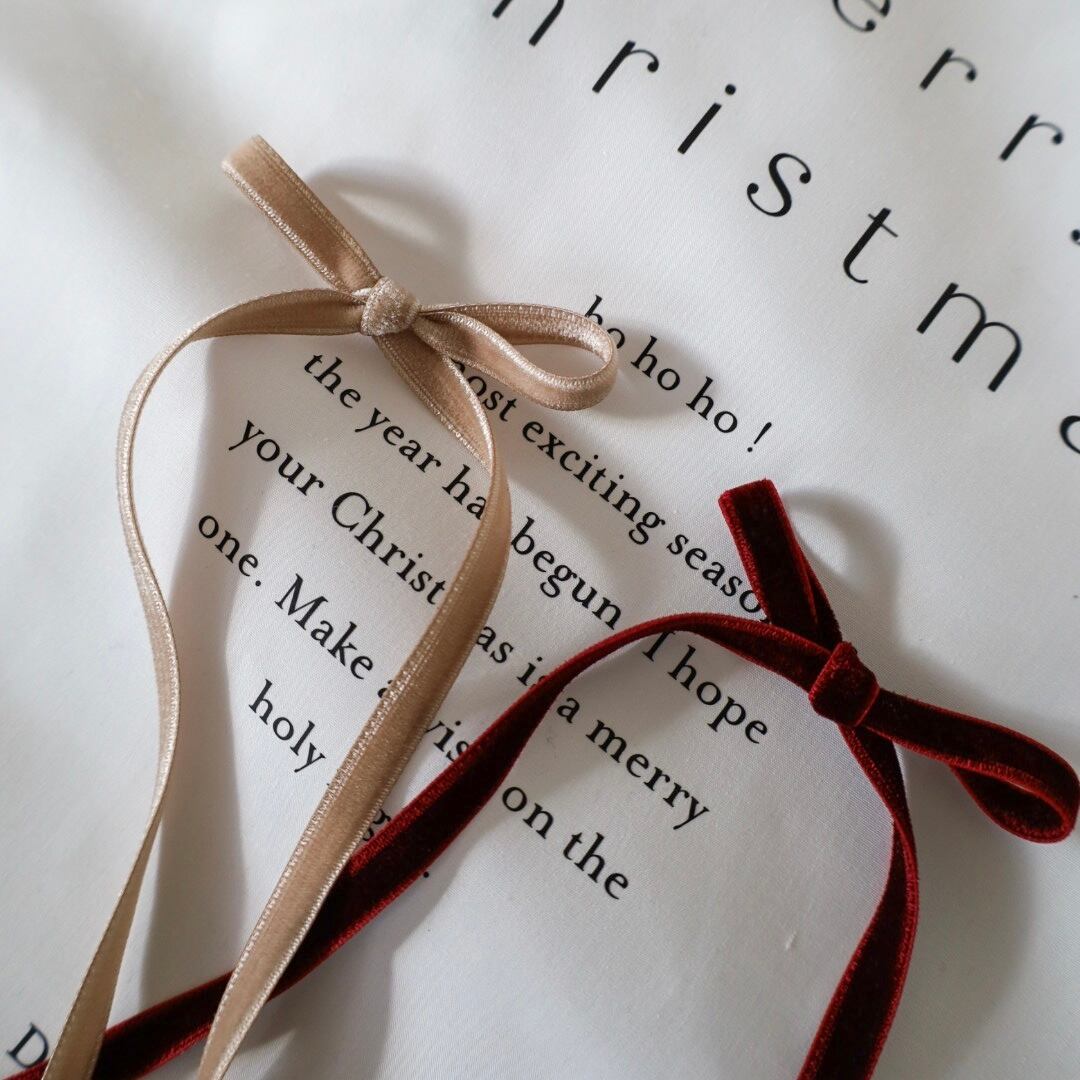 e r r
h r i s t m a
ho ho ho !
ost exciting seaso
the year ha begun I hope
your Christ as is a merry
one. Make a wis on the
holy
D